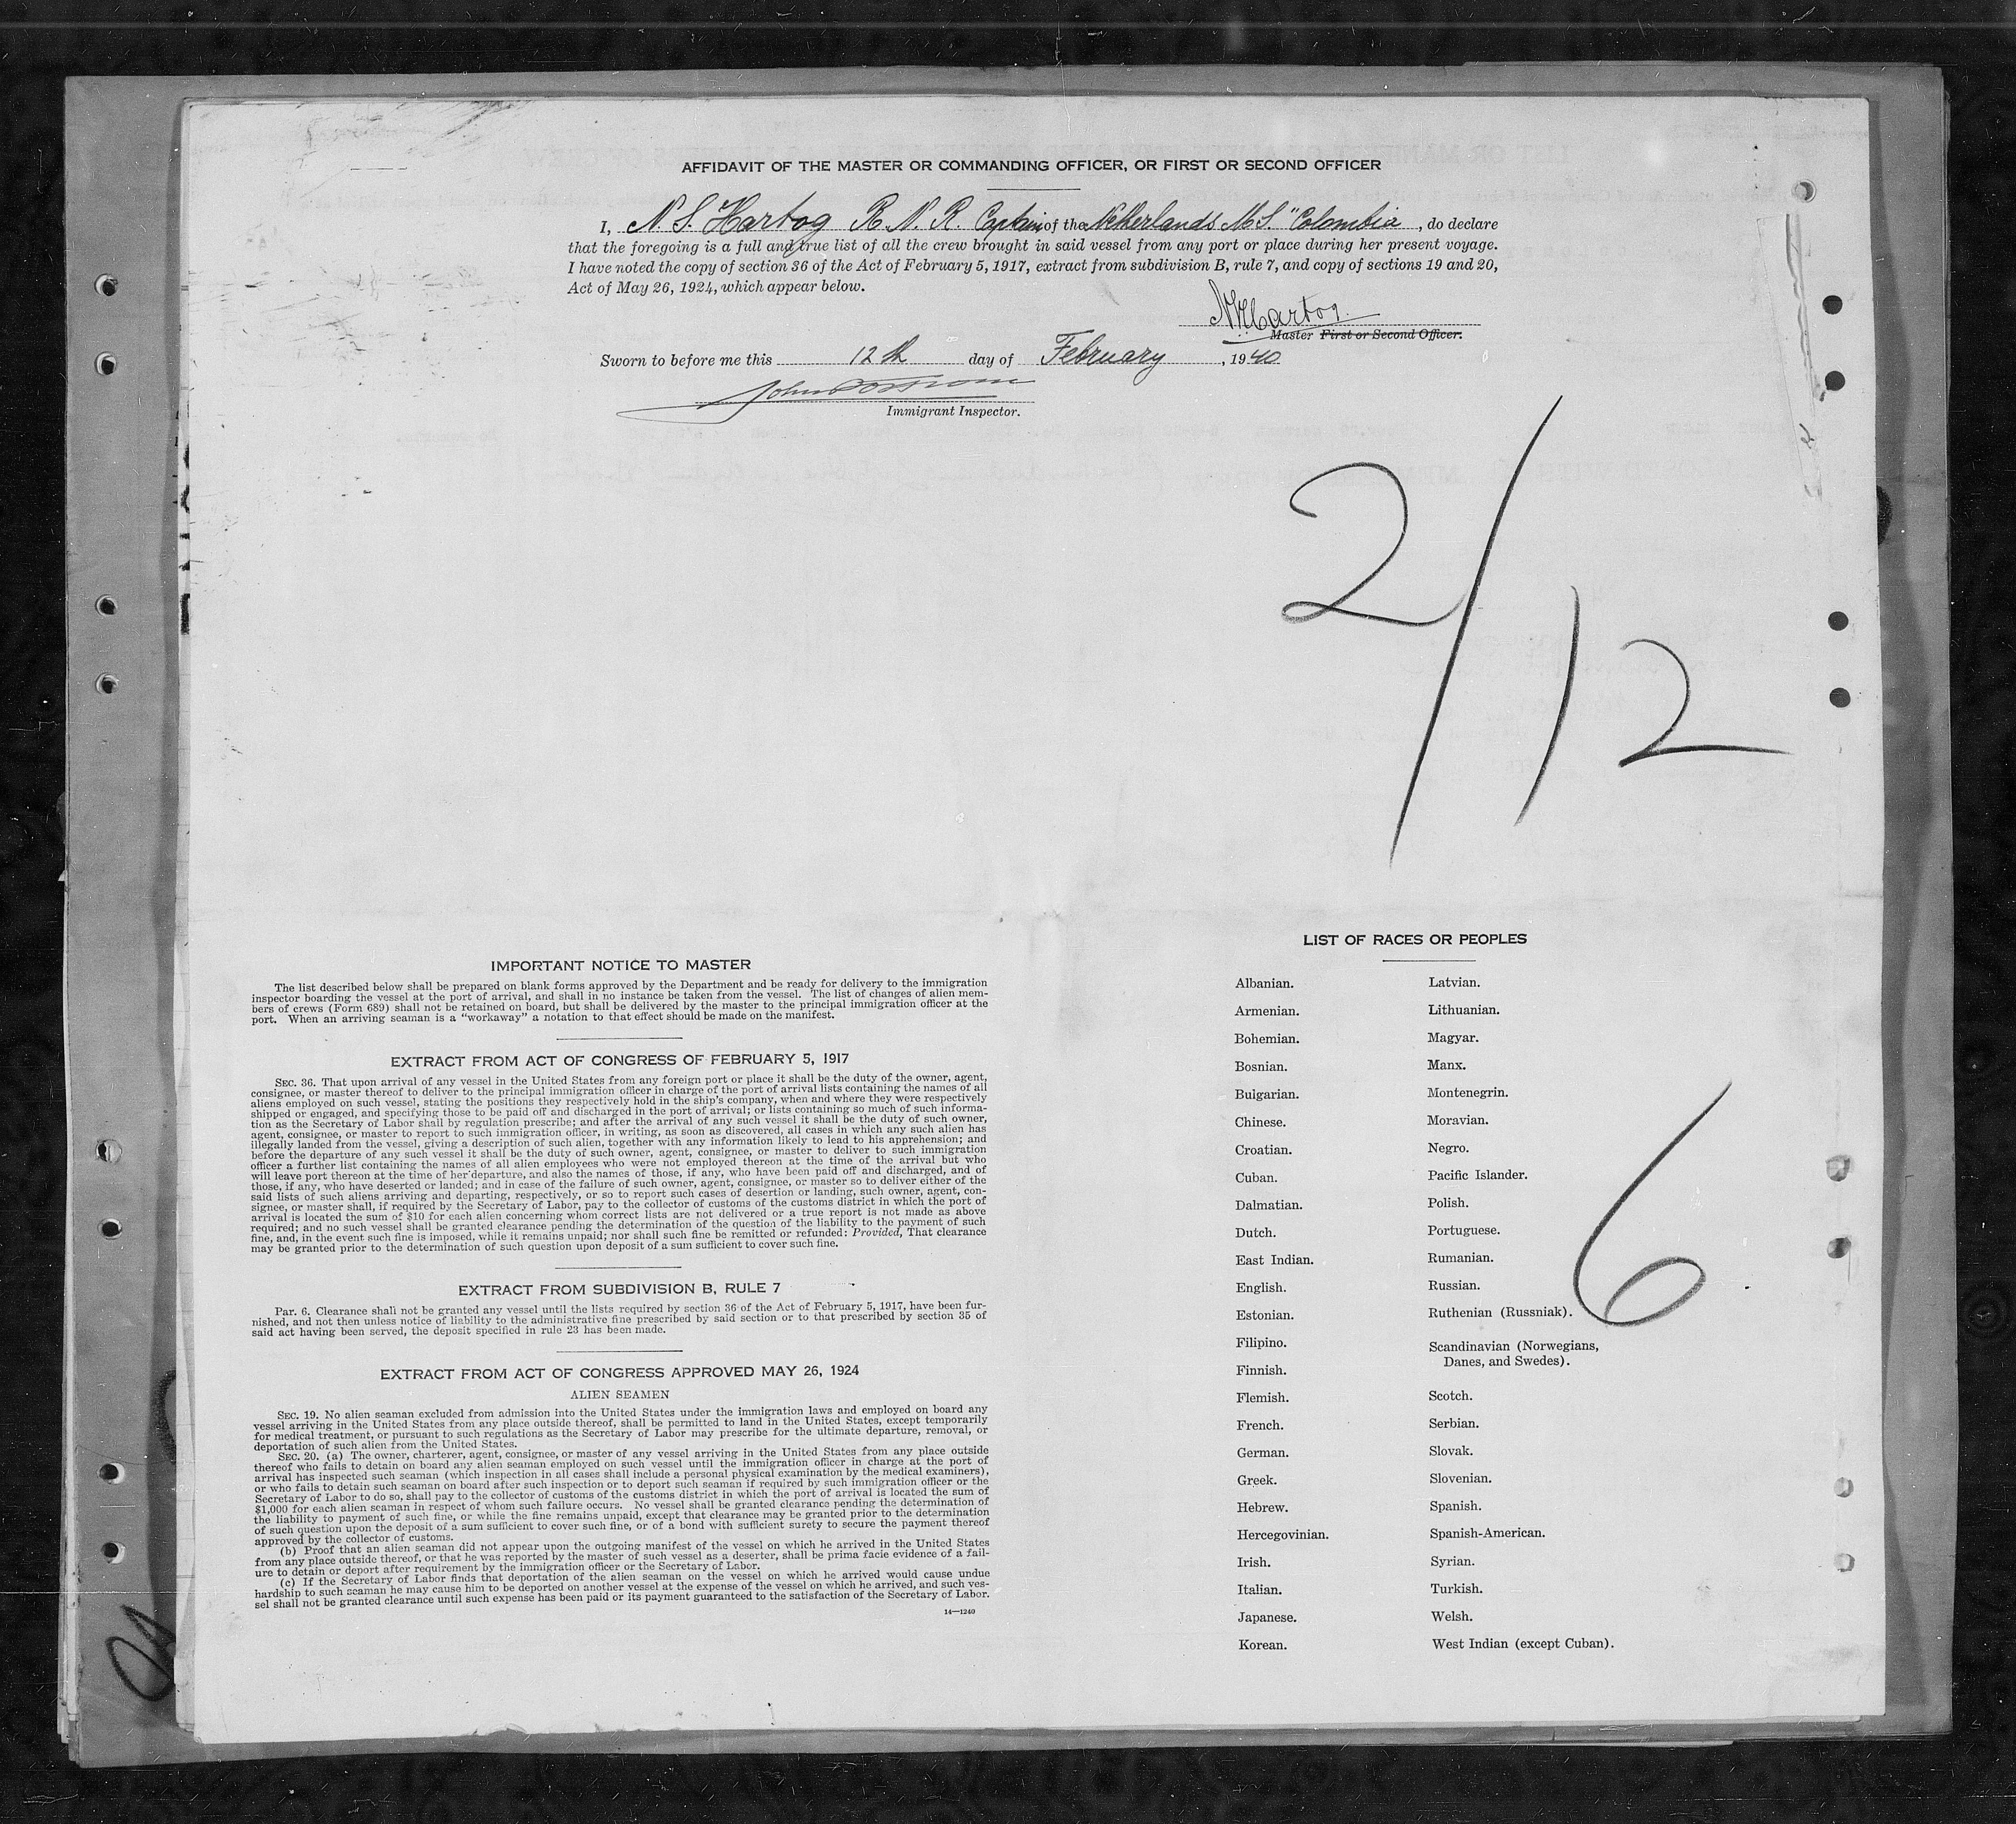 AFFIDAVIT OF THE MASTER OR COMMANDING OFFICER, OR FIRST OR SECOND OFFICER
I, N. S. Hartog R. N. R. Captain of the Netherlands M.S. "Colombia , do declare
that the foregoing is a full and true list of all the crew brought in said vessel from any port or place during her present voyage.
I have noted the copy of section 36 of the Act of February 5, 1917, extract from subdivision B, rule 7, and copy of sections 19 and 20,
Act of May 26, 1924, which appear below.
Hartog.
Master First or Second Officer.
Sworn to before me this 12th day of February , 1940
Immigrant Inspector.
2/12
IMPORTANT NOTICE TO MASTER
The list described below shall be prepared on blank forms approved by the Department and be ready for delivery to the immigration
inspector boarding the vessel at the port of arrival, and shall in no instance be taken from the vessel. The list of changes of alien mem-
bers of crews (Form 689) shall not be retained on board, but shall be delivered by the master to the principal immigration officer at the
port. When an arriving seaman is a "workaway" a notation to that effect should be made on the manifest.
EXTRACT FROM ACT OF CONGRESS OF FEBRUARY 5, 1917
SEC. 36. That upon arrival of any vessel in the United States from any foreign port or place it shall be the duty of the owner, agent,
consignee, or master thereof to deliver to the principal immigration officer in charge of the port of arrival lists containing the names of all
aliens employed on such vessel, stating the positions they respectively hold in the ship's company, when and where they were respectively
shipped or engaged, and specifying those to be paid off and discharged in the port of arrival; or lists containing so much of such informa-
tion as the Secretary of Labor shall by regulation prescribe; and after the arrival of any such vessel it shall be the duty of such owner,
agent, consignee, or master to report to such immigration officer, in writing, as soon as discovered, all cases in which any such alien has
illegally landed from the vessel, giving a description of such alien, together with any information likely to lead to his apprehension; and
before the departure of any such vessel it shall be the duty of such owner, agent, consignee, or master to deliver to such immigration
officer a further list containing the names of all alien employees who were not employed thereon at the time of the arrival but who
will leave port thereon at the time of her departure, and also the names of those, if any, who have been paid off and discharged, and of
those, if any, who have deserted or landed; and in case of the failure of such owner, agent, consignee, or master so to deliver either of the
said lists of such aliens arriving and departing, respectively, or so to report such cases of desertion or landing, such owner, agent, con-
signee, or master shall, if required by the Secretary of Labor, pay to the collector of customs of the customs district in which the port of
arrival is located the sum of $10 for each alien concerning whom correct lists are not delivered or a true report is not made as above
required; and no such vessel shall be granted clearance pending the determination of the question of the liability to the payment of such
fine, and, in the event such fine is imposed, while it remains unpaid; nor shall such fine be remitted or refunded: Provided, That clearance
may be granted prior to the determination of such question upon deposit of a sum sufficient to cover such fine.
EXTRACT FROM SUBDIVISION B, RULE 7
Par. 6. Clearance shall not be granted any vessel until the lists required by section 36 of the Act of February 5, 1917, have been fur-
nished, and not then unless notice of liability to the administrative fine prescribed by said section or to that prescribed by section 35 of
said act having been served, the deposit specified in rule 23 has been made.
EXTRACT FROM ACT OF CONGRESS APPROVED MAY 26, 1924
ALIEN SEAMEN
SEC. 19. No alien seaman excluded from admission into the United States under the immigration laws and employed on board any
vessel arriving in the United States from any place outside thereof, shall be permitted to land in the United States, except temporarily
for medical treatment, or pursuant to such regulations as the Secretary of Labor may prescribe for the ultimate departure, removal, or
deportation of such alien from the United States.
SEC. 20. (a) The owner, charterer, agent, consignee, or master of any vessel arriving in the United States from any place outside
thereof who fails to detain on board any alien seaman employed on such vessel until the immigration officer in charge at the port of
arrival has inspected such seaman (which inspection in all cases shall include a personal physical examination by the medical examiners),
or who fails to detain such seaman on board after such inspection or to deport such seaman if required by such immigration officer or the
Secretary of Labor to do so, shall pay to the collector of customs of the customs district in which the port of arrival is located the sum of
$1,000 for each alien seaman in respect of whom such failure occurs. No vessel shall be granted clearance pending the determination of
the liability to payment of such fine, or while the fine remains unpaid, except that clearance may be granted prior to the determination
of such question upon the deposit of a sum sufficient to cover such fine, or of a bond with sufficient surety to secure the payment thereof
approved by the collector of customs.
(b) Proof that an alien seaman did not appear upon the outgoing manifest of the vessel on which he arrived in the United States
from any place outside thereof, or that he was reported by the master of such vessel as a deserter, shall be prima facie evidence of a fail-
ure to detain or deport after requirement by the immigration officer or the Secretary of Labor.
(c) If the Secretary of Labor finds that deportation of the alien seaman on the vessel on which he arrived would cause undue
hardship to such seaman he may cause him to be deported on another vessel at the expense of the vessel on which he arrived, and such ves-
sel shall not be granted clearance until such expense has been paid or its payment guaranteed to the satisfaction of the Secretary of Labor.
14—1240
LIST OF RACES OR PEOPLES
Albanian.
Armenian.
Bohemian.
Bosnian.
Bulgarian.
Chinese.
Croatian.
Cuban.
Dalmatian.
Dutch.
East Indian.
English.
Estonian.
Filipino.
Finnish.
Flemish.
French.
German.
Greek.
Hebrew.
Hercegovinian.
Irish.
Italian.
Japanese.
Korean.
Latvian.
Lithuanian.
Magyar.
Manx.
Montenegrin.
Moravian.
Negro.
Pacific Islander.
Polish.
Portuguese.
Rumanian.
Russian.
Ruthenian (Russniak).
Scandinavian (Norwegians,
Danes, and Swedes).
Scotch.
Serbian.
Slovak.
Slovenian.
Spanish.
Spanish-American.
Syrian.
Turkish.
Welsh.
West Indian (except Cuban).
6